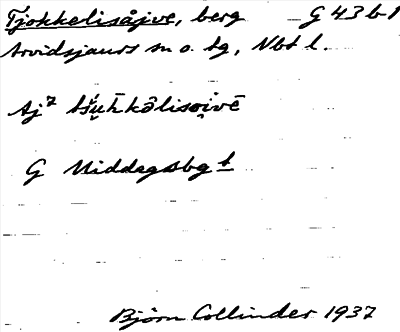 Tjokkelisåjve, berg G 43 b 1
Arvidsjaurs sn o. tg, Nbt l.
Aj⁷
G Middagsbg t
Björn Collinder 1937